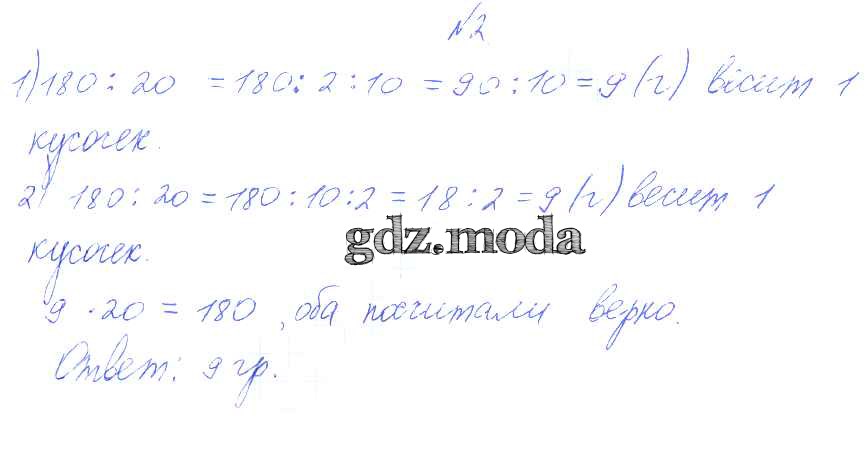 №2
1) 180 : 20 = 180 : 2 : 10 = 90 : 10 = 9 (г) весит 1
кусочек.
2) 180 : 20 = 180 : 10 : 2 = 18 : 2 = 9 (г) весит 1
кусочек.
gdz.moda
9 · 20 = 180, оба посчитали верно.
Ответ: 9 гр.